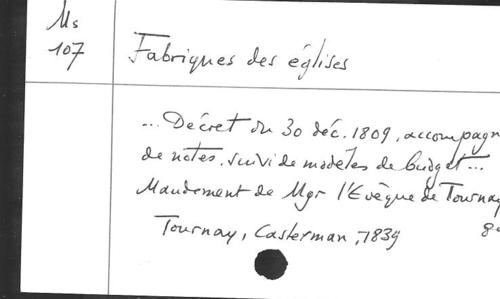 Ms
107
Fabriques des églises
... Décret du 30 déc. 1809, accompagn
de notes, suivi de modèles de budget...
Mandement de Mgr l'Evêque de Tournay
Tournay, Casterman, 1839